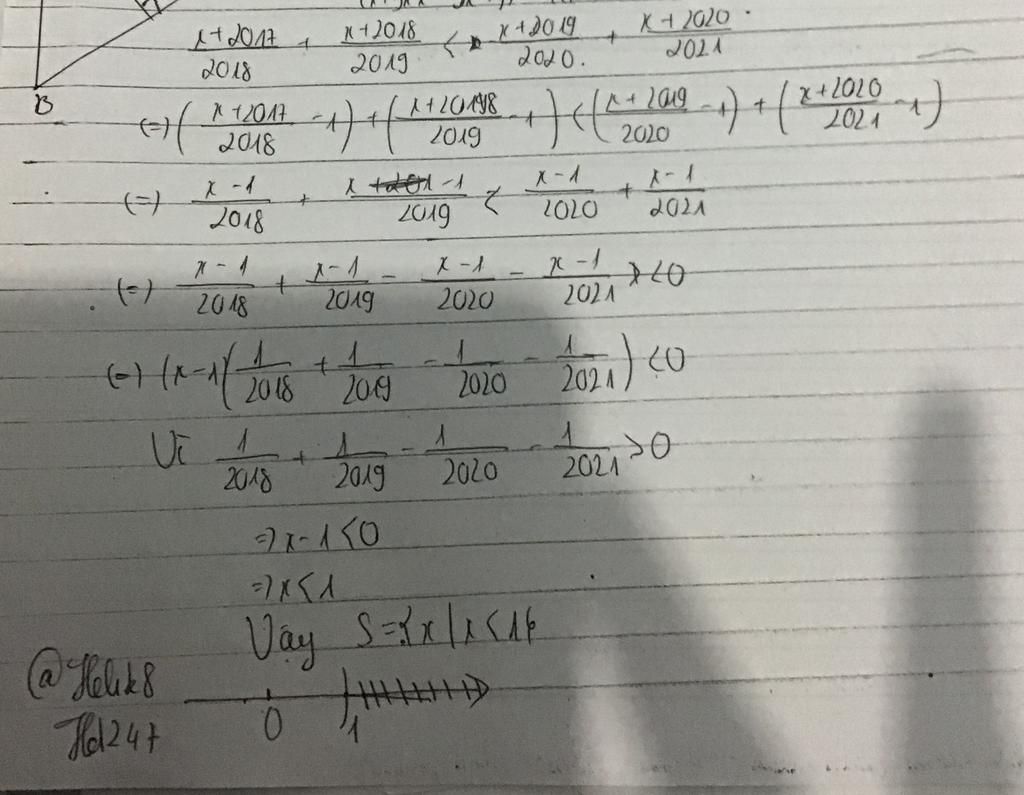 B
(x+2017)/2018 + (x+2018)/2019 < (x+2019)/2020 . + (x+2020)/2021
(=) ((x+2017)/2018 - 1) + ((x+2018)/2019 - 1) < ((x+2019)/2020 - 1) + ((x+2020)/2021 - 1)
(=) (x-1)/2018 + (x-1)/2019 < (x-1)/2020 + (x-1)/2021
(=) (x-1)/2018 + (x-1)/2019 - (x-1)/2020 - (x-1)/2021 < 0
(=) (x-1)(1/2018 + 1/2019 - 1/2020 - 1/2021) < 0
Vì 1/2018 + 1/2019 - 1/2020 - 1/2021 > 0
=> x-1 < 0
=> x < 1
Vậy S={x/x<1}
0 1